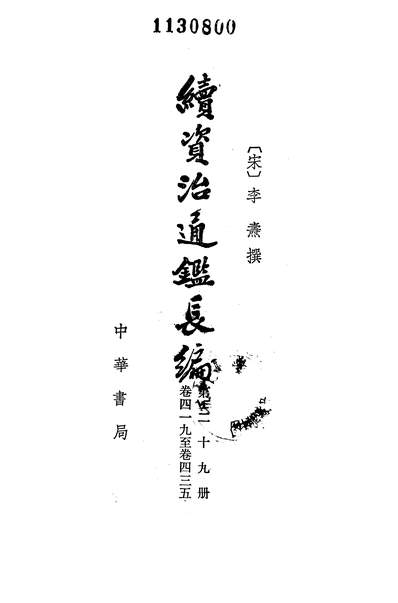 1130800
〔宋〕李燾撰
續資治通鑑長編
第二十九册
卷四一九至卷四三五
中華書局